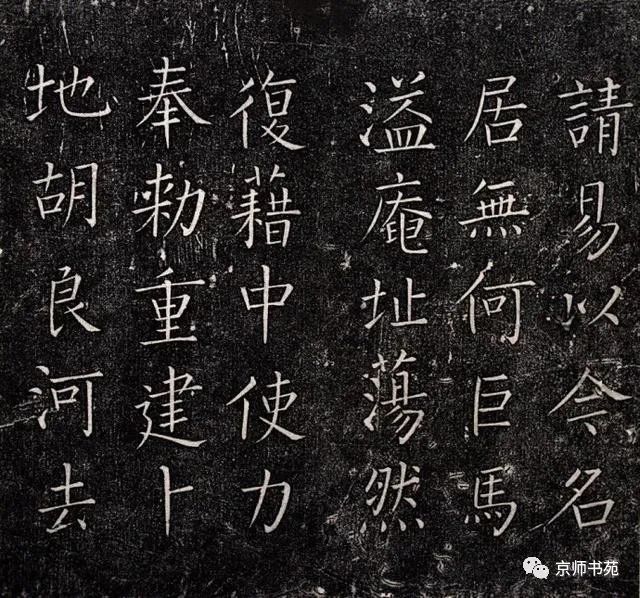 請易以今名
居無何巨馬
溢庵址蕩然
復藉中使力
奉勅重建卜
地胡良河去
京师书苑